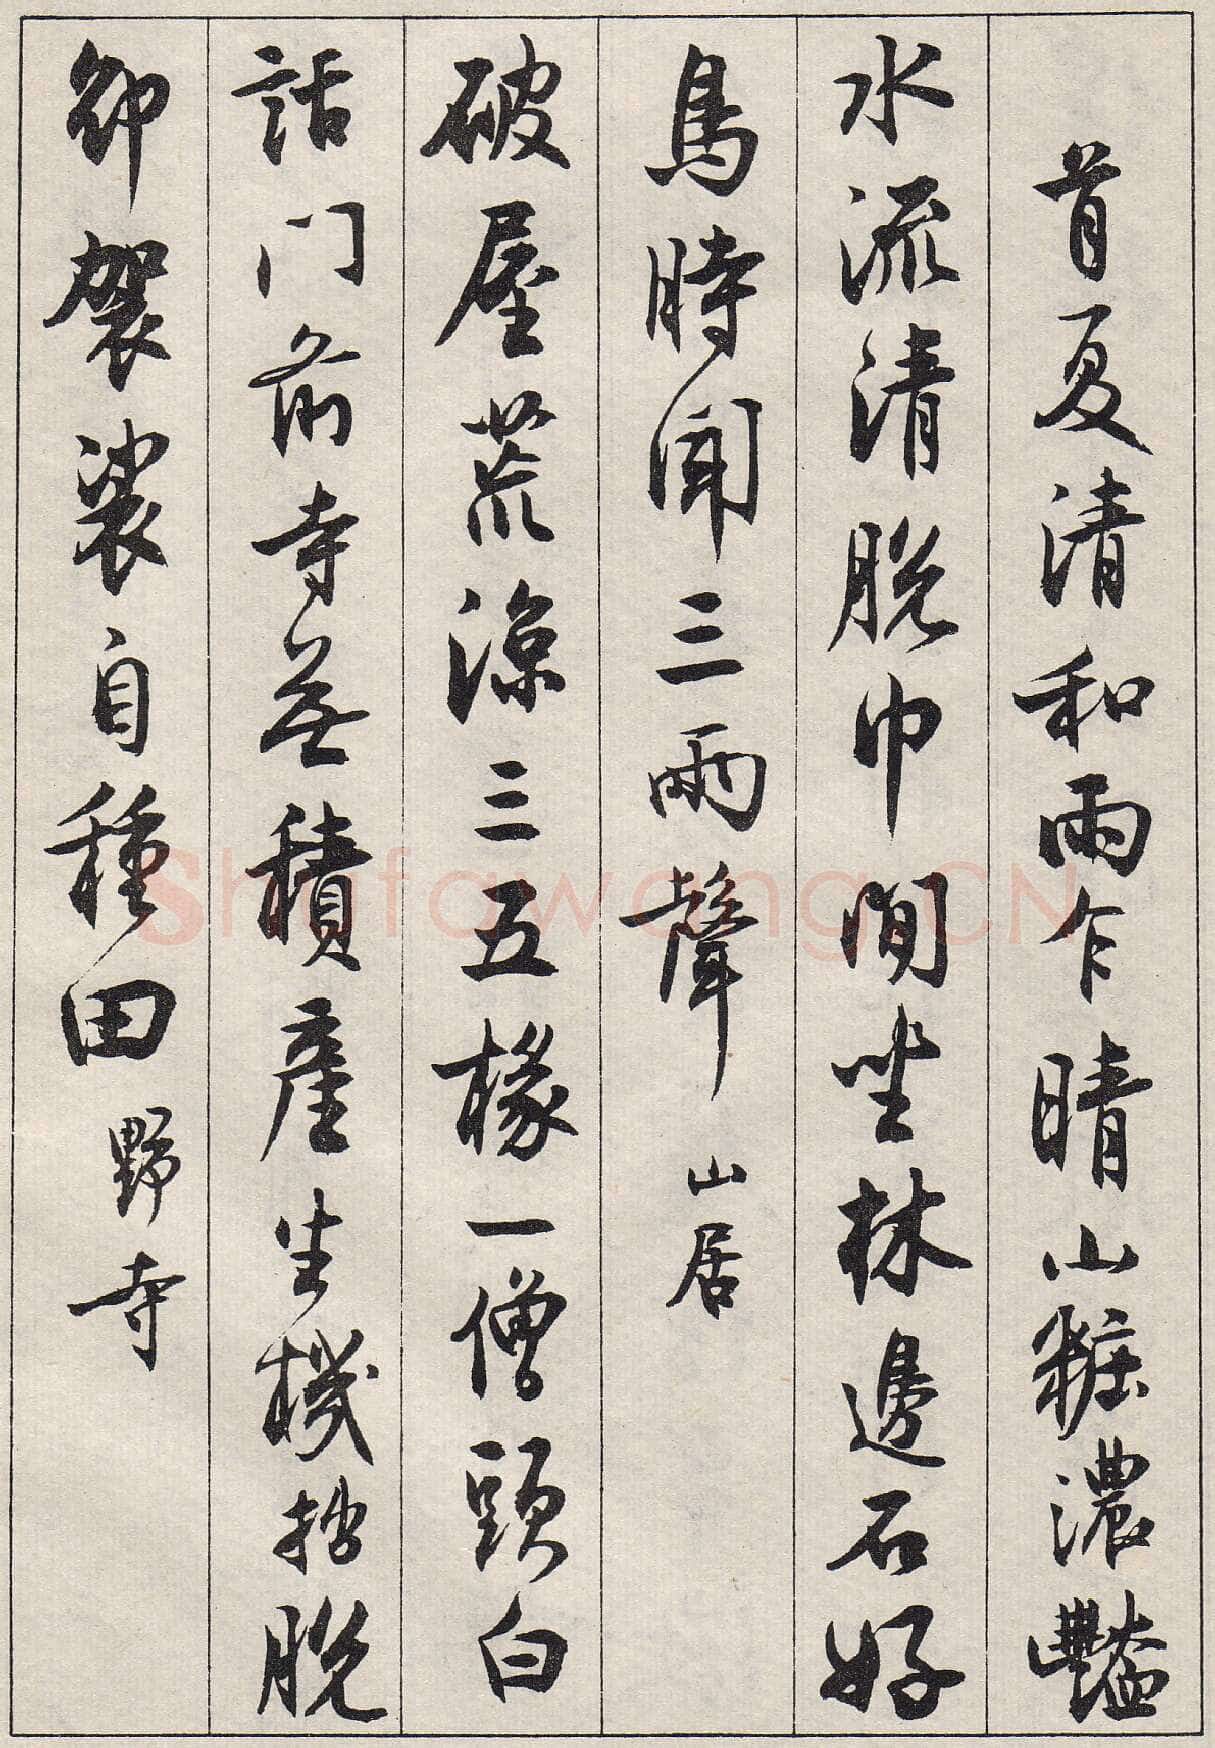 首夏清和雨乍晴山粧濃豔
水流清脱巾閒坐林邊石好
鳥時聞三兩聲 山居
破屋荒涼三五椽一僧頭白
話門前寺無積產生機拙脱
卸袈裟自種田 野寺
Shufawang.CN